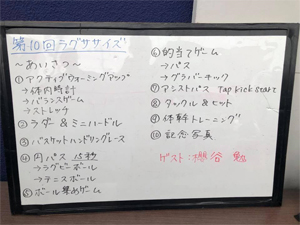 第10回ラグササイズ
～あいさつ～
①アクティブウォーミングアップ
→体内時計
→バランスゲーム
→ストレッチ
②ラダー&ミニハードル
③バスケットハンドリングレース
④円パス 15秒
→ラグビーボール
→テニスボール
⑤ボール集めゲーム
⑥的当てゲーム
→パス
→グラバーキック
⑦アシストパス Tap Kick Start
⑧タックル&ヒット
⑨体幹トレーニング
⑩記念写真
ゲスト:櫻谷 勉